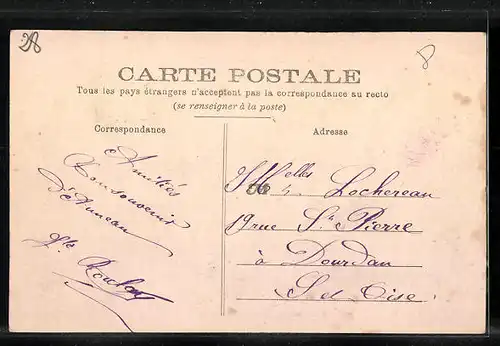 28
8
CARTE POSTALE
Tous les pays étrangers n'acceptent pas la correspondance au recto
(se renseigner à la poste)
Correspondance
Amitiés
Bon souvenir
d'Auneau
Adresse
Melles Lochereau
19 rue St Pierre
à Dourdan
S et Oise